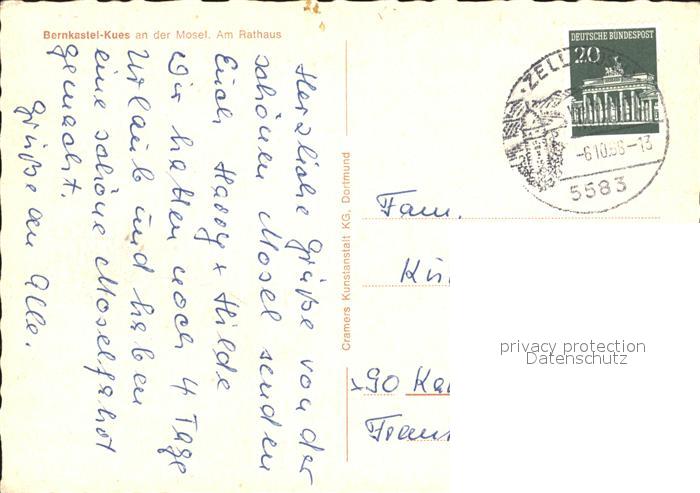 Bernkastel-Kues an der Mosel. Am Rathaus
Herzliche Grüße von der
schönen Mosel senden
Euch Harry + Hilde
Wir hatten noch 4 Tage
Urlaub und haben
eine schöne Moselfahrt
gemacht.
Grüße an Alle.
Cramers Kunstanstalt KG, Dortmund
DEUTSCHE BUNDESPOST
20
ZELL
-6.10.66-13
5583
Fam.
90 Ka
privacy protection
Datenschutz